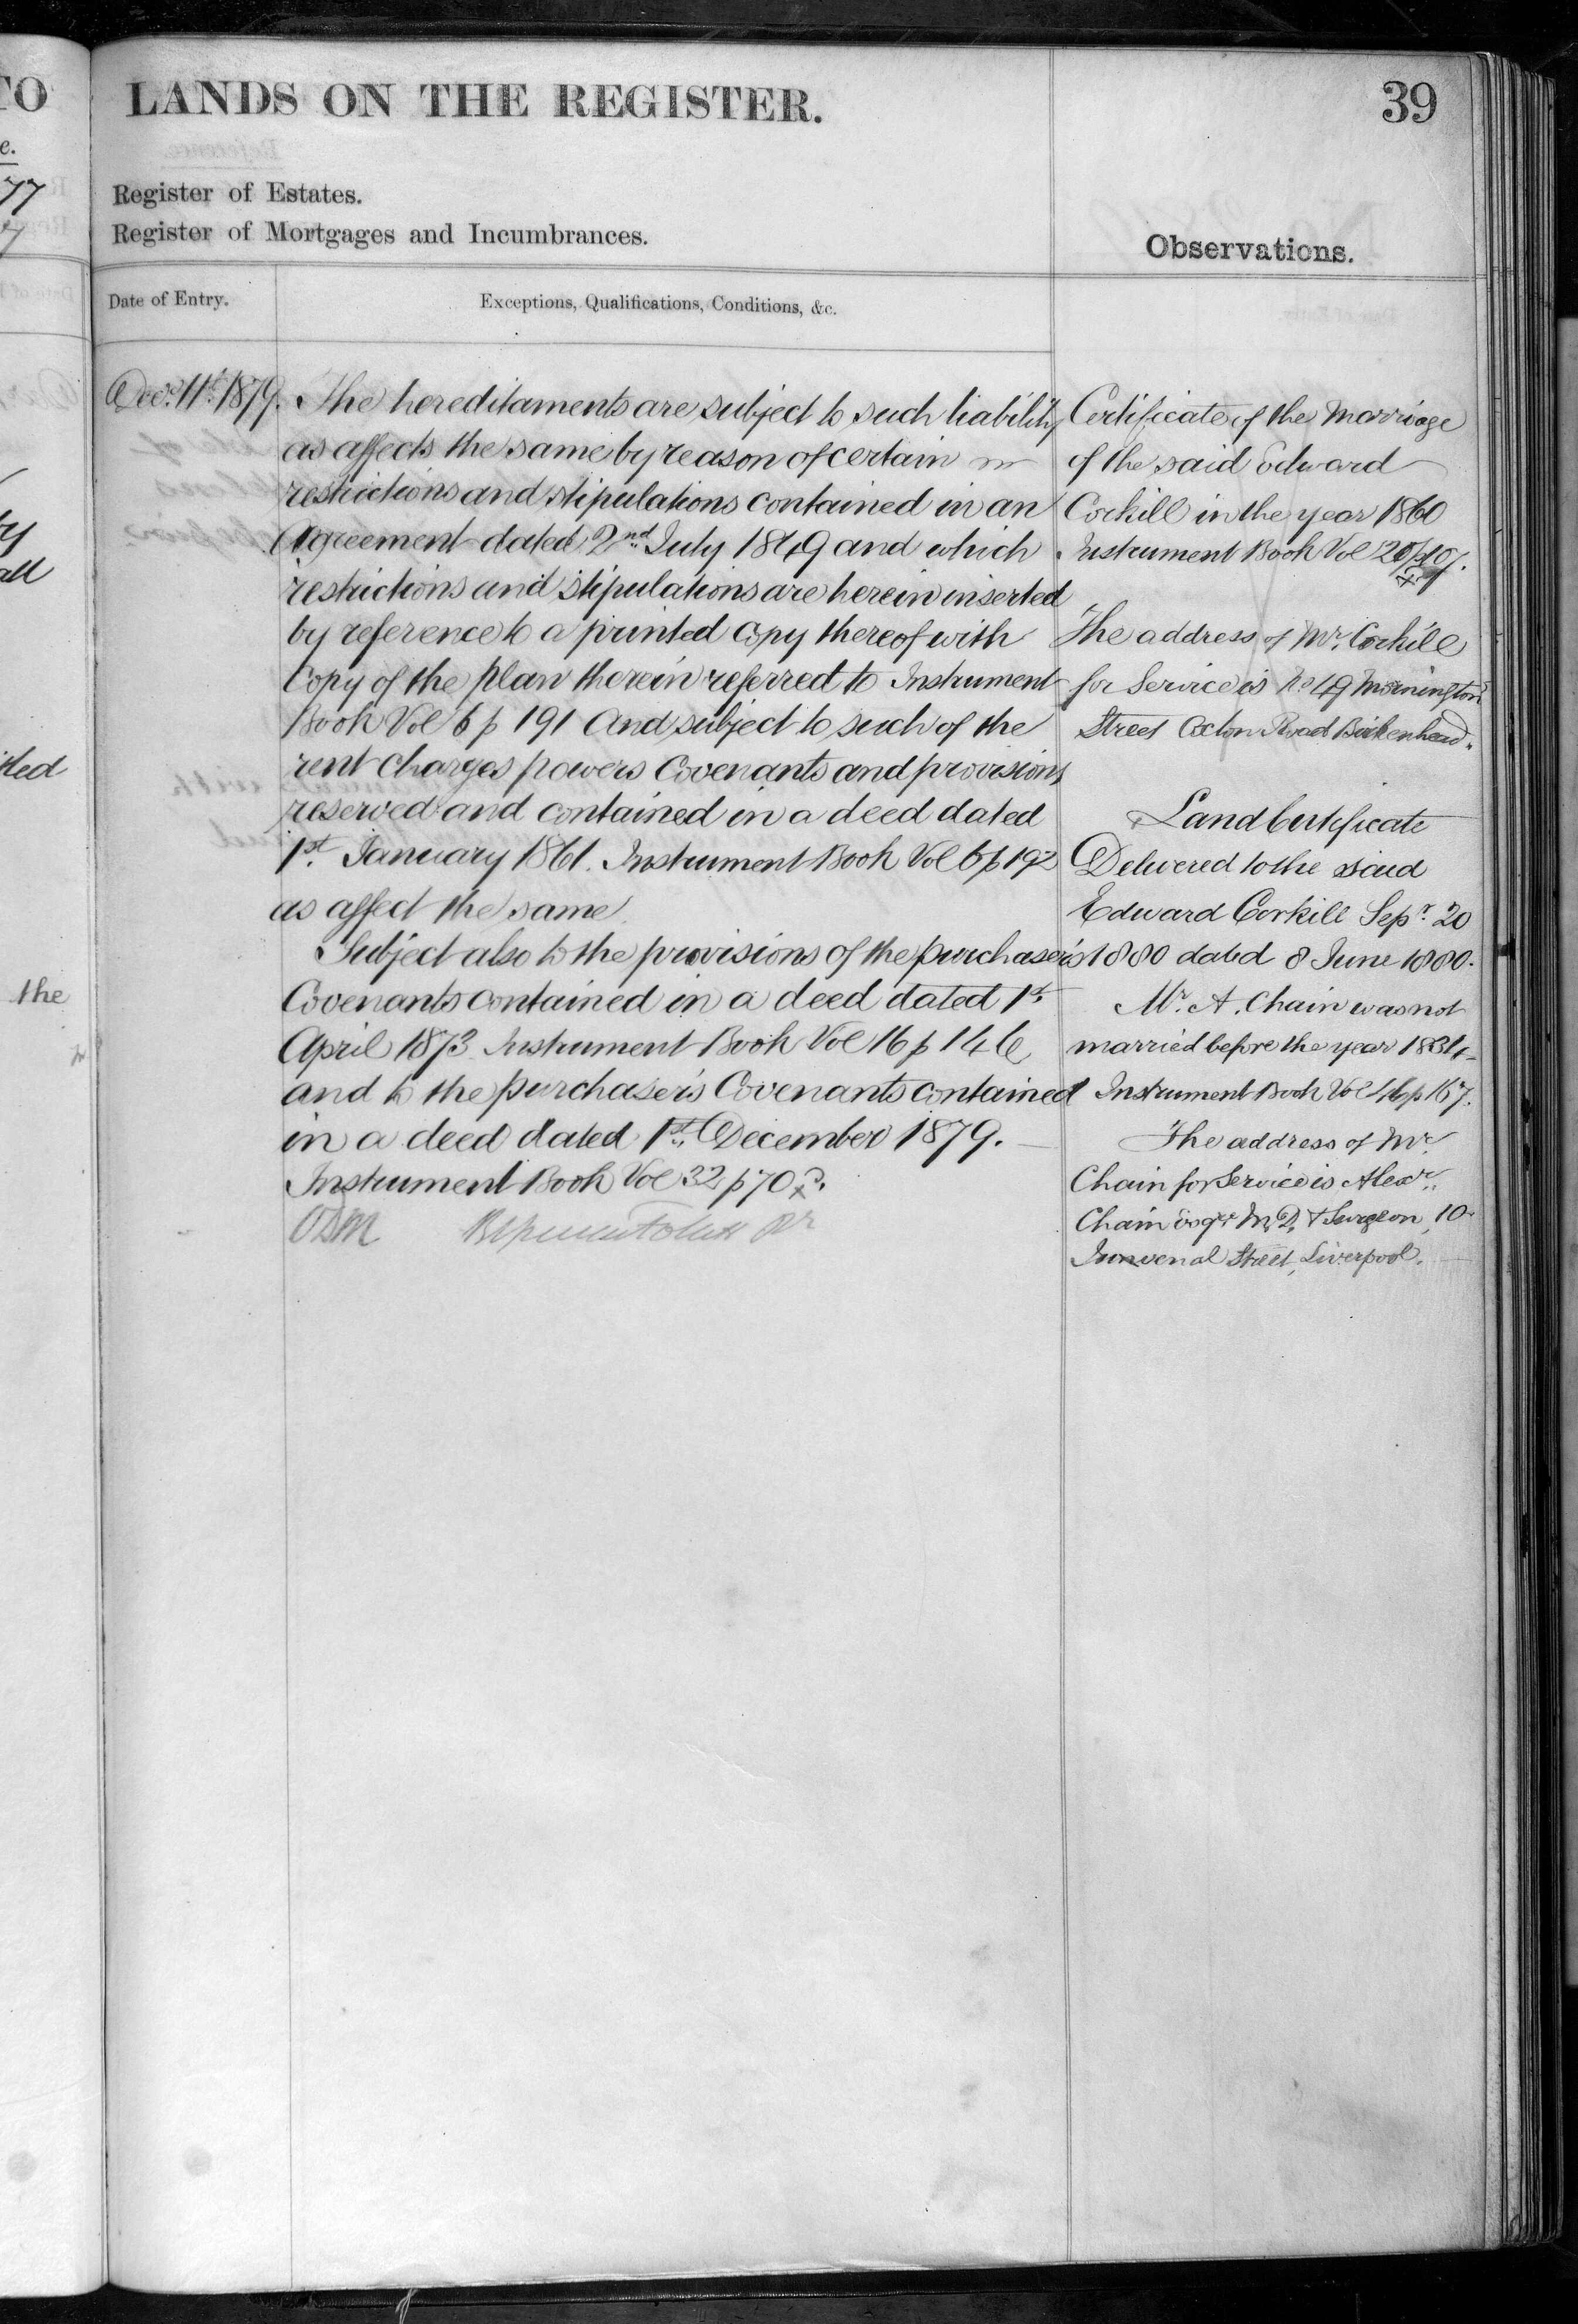 TO
LANDS ON THE REGISTER.
39
e.
77
7
Register of Estates.
Register of Mortgages and Incumbrances.
Observations.
Date of Entry.
Exceptions, Qualifications, Conditions, &c.
Decr. 11th 1879.
The hereditaments are subject to such liability
as affects the same by reason of certain
restrictions and stipulations contained in an
Agreement dated 2nd July 1849 and which
restrictions and stipulations are herein inserted
by reference to a printed copy thereof with
Copy of the plan therein referred to Instrument
Book Vol 6 p 191 And subject to such of the
rent charges powers Covenants and provisions
reserved and contained in a deed dated
1st. January 1861. Instrument Book Vol 6 p 192
as affect the same
Subject also to the provisions of the purchaser's
Covenants contained in a deed dated 1st.
April 1873 Instrument Book Vol 16 p 146
and to the purchaser's Covenants contained
in a deed dated 1st. December 1879.
Instrument Book Vol 32 p 70
Certificate of the Marriage
of the said Edward
Corkill in the year 1860
Instrument Book Vol
The address of Mr. Corkill
for Service is No 49 Mornington
Street Oxton Road Birkenhead.
Land Certificate
Delivered to the said
Edward Corkill Sepr. 20
1880 dated 8 June 1880.
Mr. A. Chain was not
married before the year 1834
Instrument Book Vol 46 p 167.
The address of Mr.
Chain for Service is Alexr.
Chain Esqre M.D. & Surgeon, 10
Juvenal Street, Liverpool.
all
the